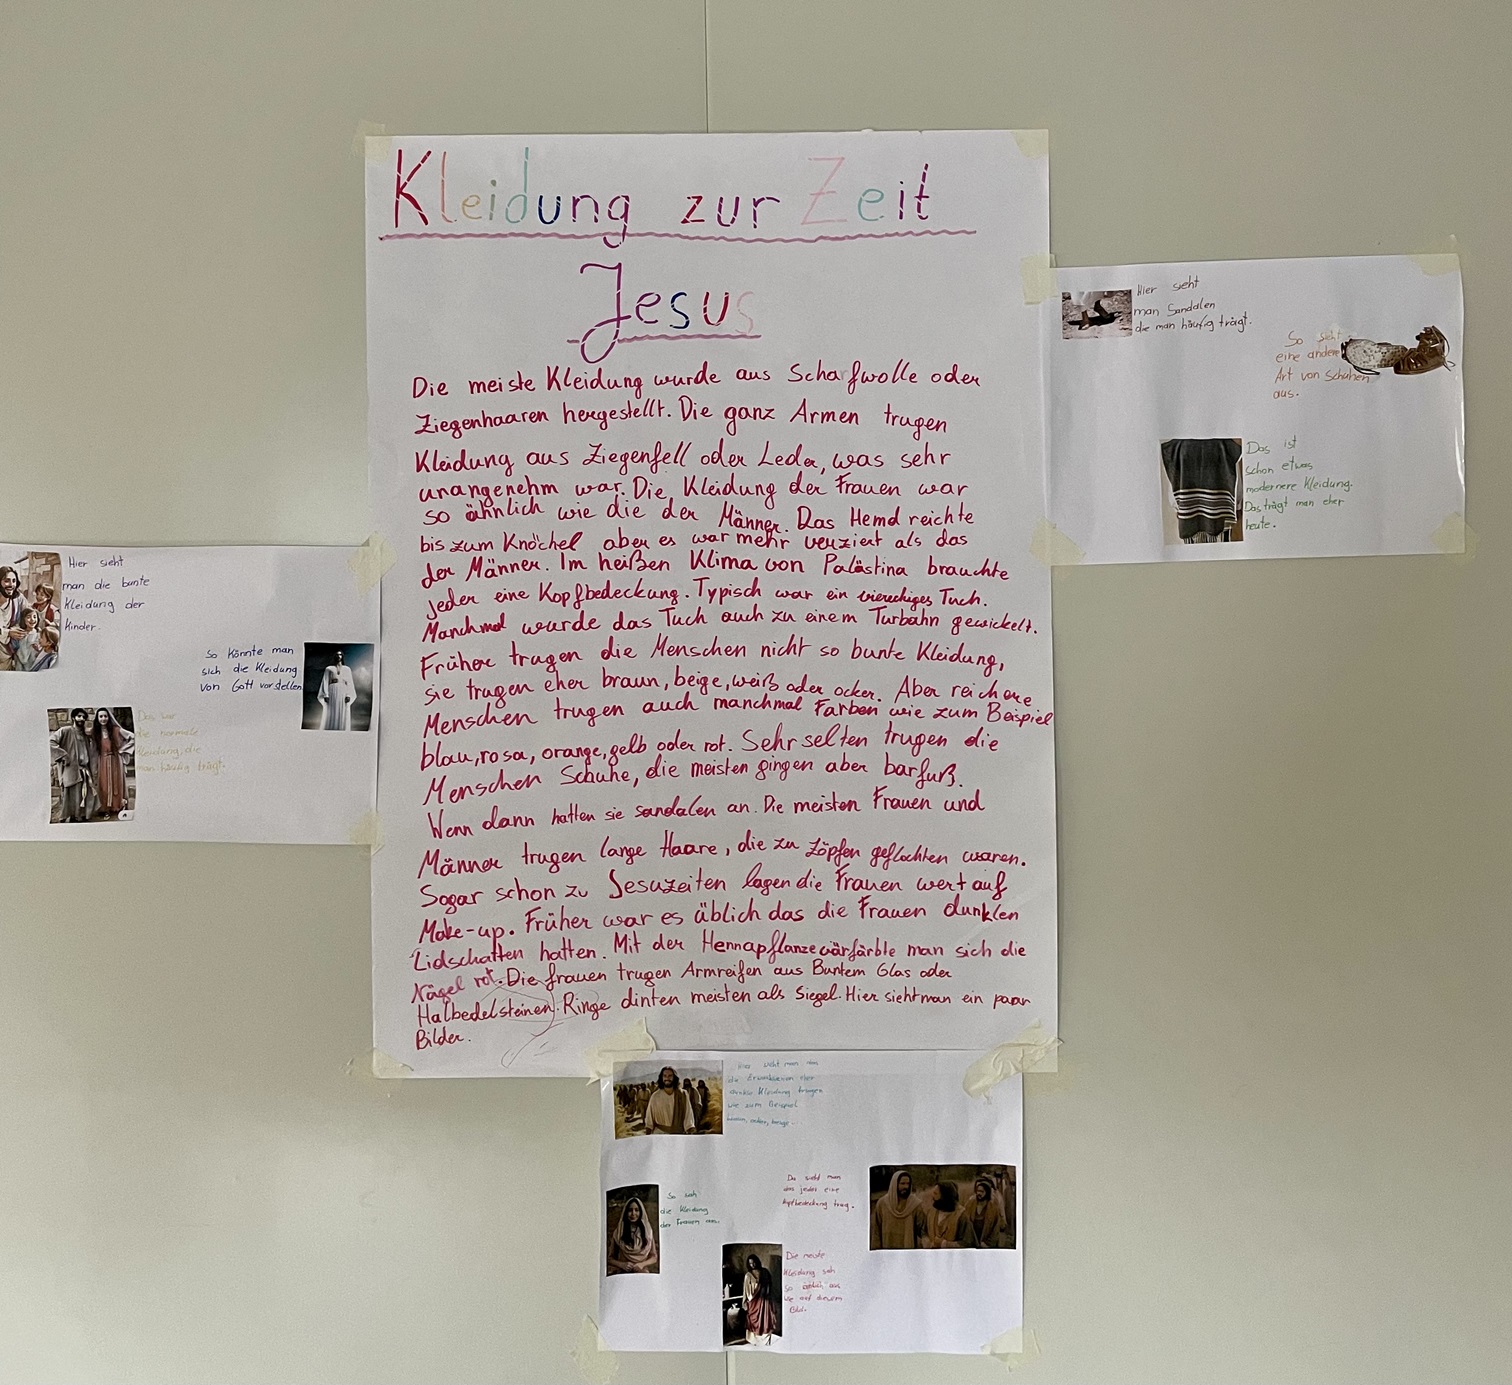 Kleidung zur Zeit
Jesus
Die meiste Kleidung wurde aus Scharfwolle oder
Ziegenhaaren hergestellt. Die ganz Armen trugen
Kleidung aus Ziegenfell oder Leder, was sehr
unangenehm war. Die Kleidung der Frauen war
so ähnlich wie die der Männer. Das Hemd reichte
bis zum Knöchel aber es war mehr verziert als das
der Männer. Im heißen Klima von Palästina brauchte
jeder eine Kopfbedeckung. Typisch war ein viereckiges Tuch.
Manchmal wurde das Tuch auch zu einem Turbahn gewickelt.
Früher trugen die Menschen nicht so bunte Kleidung,
sie trugen eher braun, beige, weiß oder ocker. Aber reichere
Menschen trugen auch manchmal Farben wie zum Beispiel
blau, rosa, orange, gelb oder rot. Sehr selten trugen die
Menschen Schuhe, die meisten gingen aber barfuß.
Wenn dann hatten sie sandalen an. Die meisten Frauen und
Männer trugen lange Haare, die zu Zöpfen geflochten waren.
Sogar schon zu Jesuzeiten lagen die Frauen wert auf
Make-up. Früher war es üblich das die Frauen dunklen
Lidschatten hatten. Mit der Hennapflanze värfärbte man sich die
Nägel rot. Die frauen trugen Armreifen aus Buntem Glas oder
Halbedelsteinen. Ringe dinten meisten als Siegel. Hier sieht man ein paar
Bilder.
Hier sieht
man die bunte
Kleidung der
Kinder.
So könnte man
sich die Kleidung
von Gott vorstellen
Das war
die normale
Kleidung, die
man häufig trägt.
Hier sieht
man Sandalen
die man häufig trägt.
So sieht
eine andere
Art von Schuhen
aus.
Das ist
schon etwas
modernere Kleidung.
Das trägt man eher
heute.
Hier sieht man
die Erwachsenen eher
dunkle Kleidung trugen
wie zum Beispiel
So sah
die Kleidung
der Frauen aus.
Da sieht man
das jeder eine
Kopfbedeckung trug.
Die meiste
Kleidung sah
so aus
wie auf diesem
Bild.